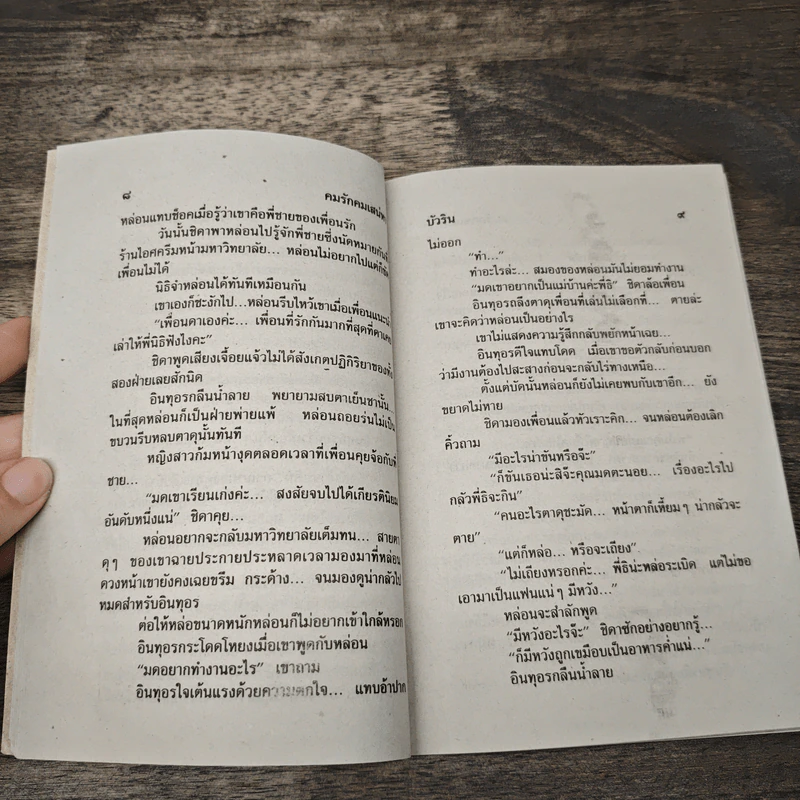 ๘ คมรักคมเสน่ห
หล่อนแทบช็อคเมื่อรู้ว่าเขาคือพี่ชายของเพื่อนรัก
วันนั้นชิดาพาหล่อนไปรู้จักพี่ชายซึ่งนัดหมายกัน
ร้านไอศครีมหน้ามหาวิทยาลัย... หล่อนไม่อยากไปแต่ก็
เพื่อนไม่ได้
นิธิจำหล่อนได้ทันทีเหมือนกัน
เขาเองก็ชะงักไป...หล่อนรีบไหว้เขาเมื่อเพื่อนแนะนำ
“เพื่อนดาเองค่ะ... เพื่อนที่รักกันมากที่สุดที่ดาเคย
เล่าให้พี่นิธิฟังไงคะ”
ชิดาพูดเสียงเจื้อยแจ้วไม่ได้สังเกตปฏิกิริยาของทั้ง
สองฝ่ายเลยสักนิด
อินทุอรกลืนน้ำลาย พยายามสบตาเย็นชานั้น...
ในที่สุดหล่อนก็เป็นฝ่ายพ่ายแพ้ หล่อนถอยร่นไม่เป็น
ขบวนรีบหลบตาดุนั้นทันที
หญิงสาวก้มหน้างุดตลอดเวลาที่เพื่อนคุยจ้อกับพี่
ชาย...
“มดเขาเรียนเก่งค่ะ... สงสัยจบไปได้เกียรตินิยม
อันดับหนึ่งแน่” ชิดาคุย...
หล่อนอยากจะกลับมหาวิทยาลัยเต็มทน... สายตา
ดุๆ ของเขาฉายประกายประหลาดเวลามองมาที่หล่อน
ดวงหน้าเขายังคงเฉยขรึม กระด้าง... จนมองดูน่ากลัวไป
หมดสำหรับอินทุอร
ต่อให้หล่อขนาดหนักหล่อนก็ไม่อยากเข้าใกล้หรอก
อินทุอรกระโดดโหยงเมื่อเขาพูดกับหล่อน
“มดอยากทำงานอะไร” เขาถาม
อินทุอรใจเต้นแรงด้วยความตกใจ... แทบอ้าปาก
บัวริน ๙
ไม่ออก
“ทำ...”
ทำอะไรล่ะ... สมองของหล่อนมันไม่ยอมทำงาน
“มดเขาอยากเป็นแม่บ้านค่ะพี่ธิ” ชิดาล้อเพื่อน
อินทุอรถลึงตาดุเพื่อนที่เล่นไม่เลือกที่... ตายล่ะ
เขาจะคิดว่าหล่อนเป็นอย่างไร
เขาไม่แสดงความรู้สึกกลับพยักหน้าเฉย...
อินทุอรดีใจแทบโดด เมื่อเขาขอตัวกลับก่อนบอก
ว่ามีงานต้องไปสะสางก่อนจะกลับไร่ทางเหนือ...
ตั้งแต่บัดนั้นหล่อนก็ยังไม่เคยพบกับเขาอีก... ยัง
ขยาดไม่หาย
ชิดามองเพื่อนแล้วหัวเราะคิก... จนหล่อนต้องเลิก
คิ้วถาม
“มีอะไรน่าขันหรือจ๊ะ”
“ก็ขันเธอน่ะสิจ๊ะคุณมดตะนอย... เรื่องอะไรไป
กลัวพี่ธิจะกิน”
“คนอะไรตาดุชะมัด... หน้าตาก็เหี้ยมๆ น่ากลัวจะ
ตาย”
“แต่ก็หล่อ... หรือจะเถียง”
“ไม่เถียงหรอกค่ะ... พี่ธิน่ะหล่อระเบิด แต่ไม่ขอ
เอามาเป็นแฟนแน่ๆ มีหวัง...”
หล่อนจะสำลักพูด
“มีหวังอะไรจ๊ะ” ชิดาซักอย่างอยากรู้...
“ก็มีหวังถูกเขมือบเป็นอาหารค่ำแน่...”
อินทุอรกลืนน้ำลาย